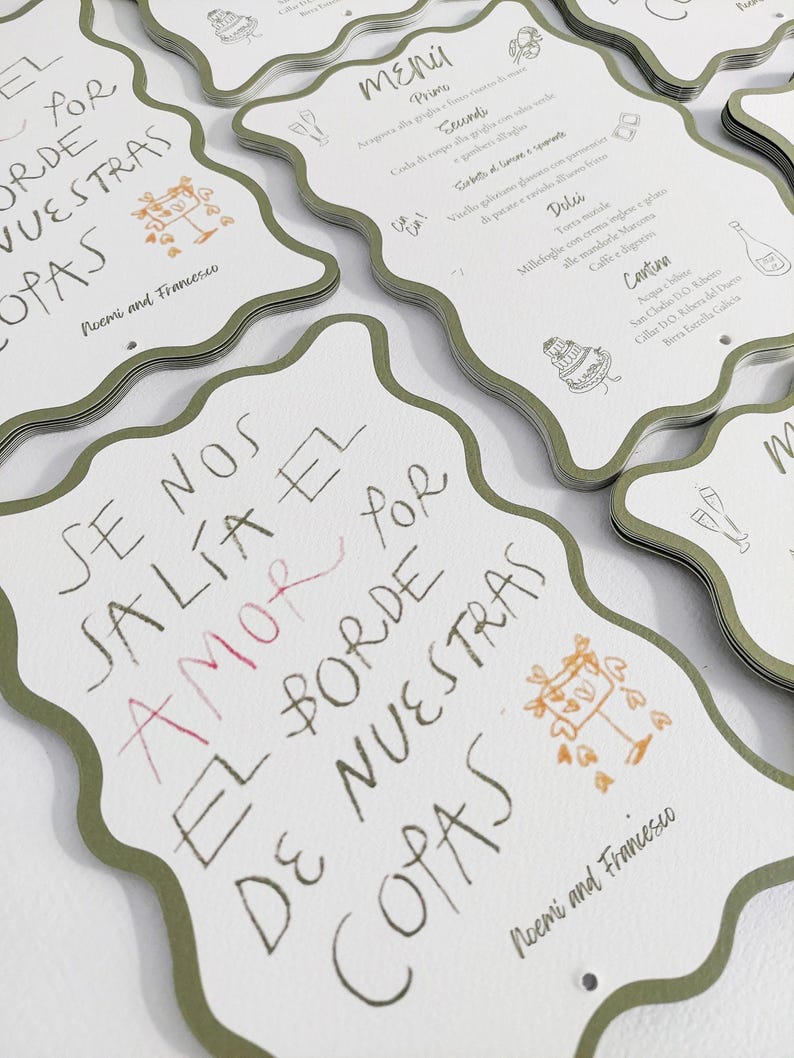 EL
POR
BORDE
NUESTRAS
COPAS
Noemi and Francesco
Cillar D.O. Ribera del Duero
Birra Estrella Galicia
MENÙ
Primo
Aragosta alla griglia e finto risotto di mare
Secondi
Coda di rospo alla griglia con salsa verde
e gamberi all'aglio
Sorbetto al limone e spumante
Vitello galiziano glassato con parmentier
di patate e raviolo all'uovo fritto
Dolci
Torta nuziale
Millefoglie con crema inglese e gelato
alle mandorle Marcona
Caffè e digestivi
Cantina
Acqua e bibite
San Clodio D.O. Ribeiro
Cillar D.O. Ribera del Duero
Birra Estrella Galicia
Cin
Cin!
SE NOS
SALÍA EL
AMOR POR
EL BORDE
DE NUESTRAS
COPAS
Noemi and Francesco